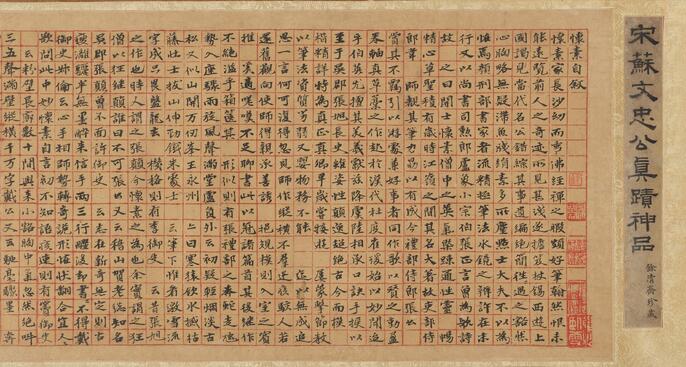 宋蘇文忠公真蹟神品
餘清齋珍藏
懷素自敘
懷素家長沙幼而事佛經禪之暇頗好筆翰然恨未
能遠覩前人之奇迹所見甚淺遂擔笈杖錫西遊上
國謁見當代名公錯綜其事遺編絕簡往往遇之豁然
心胸略無疑滯魚牋絹素多所塵點士大夫不以為
恠焉顏刑部書家者流精極筆法水鏡之辨許在末
行又以尚書司勳郎盧象小宗伯張正言曾為歌詩
故敘之曰開士懷素僧中之英氣槩通疎性靈豁暢
精心草聖積有歲時江嶺之間其名大著故吏部侍
郎韋陟覩其筆力勗以有成今禮部侍郎張公
賞其不羈引以遊處兼好事者同作歌以贊之動盈
卷軸夫草藁之作起於漢代杜度崔瑗始以妙聞迨
乎伯英尤擅其美羲獻茲降虞陸相承口訣手授以
至于吳郡張旭長史雖姿性顛逸超絕古今而模
楷精詳特為真正真卿早歲常接遊居屢蒙激昂教
以筆法資質劣弱又嬰物務不能懇習迄以無成追
思一言何可復得忽見師作縱橫不羣迅疾駭人若
還舊觀向使師得親承善誘挹規模則入室之賓
捨子奚適嗟嘆不足聊書此以冠諸篇首其後繼作
不絕溢乎箱篋其述形似則有張禮部云奔蛇走虺
勢入座驟雨旋風聲滿堂盧員外云初疑輕烟淡古
松又似山開萬仞峯王永州邕曰寒猿飲水撼枯
藤壯士拔山伸勁鐵朱處士云筆下惟看激電流
字成只畏盤龍走敘機格則有李御史云昔張旭
之作也時人謂之張顛今懷素之為也余實謂之狂
僧以狂繼顛誰曰不可張公又云稽山賀老粗知名
吳郡張顛曾不面許御史云志在新奇無定則古
瘦漓驪半無墨醉來信手兩三行醒後却書書不得戴
御史叔倫云心手相師勢轉奇詭形怪狀翻合宜人人
欲問此中妙懷素自言初不知語疾速則有竇御史
云粉壁長廊數十間興來小豁胸中氣忽然絕叫
三五聲滿壁縱橫千萬字戴公又云馳毫驟墨 奇